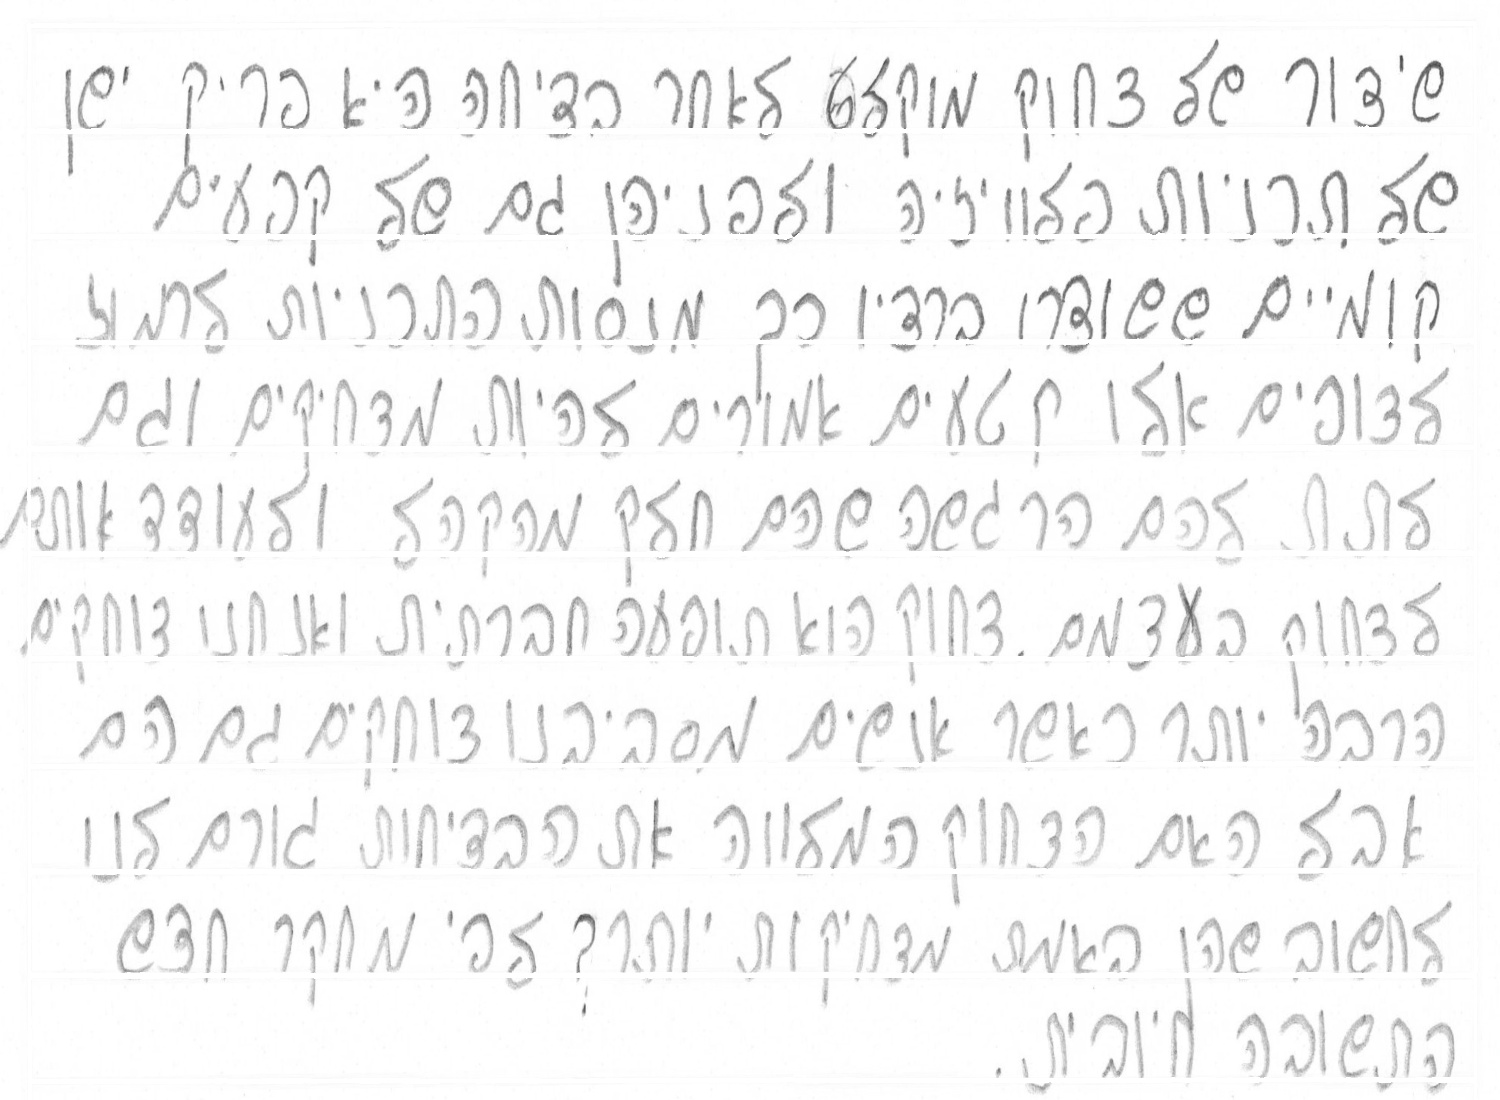 שידור של צחוק מוקלט לאחר בדיחה היא פריק ישן
של תכניות בלוויזיה ולפניהן גם של קטעים
קומיים ששודרו ברדיו כך מנסות התכניות לרמוז
לצופים אלו קטעים אמורים להיות מצחיקים וגם
לתת להם הרגשה שהם חלק מהקהל ולעודד אותם
לצחוק בעצמם. צחוק הוא תופעה חברתית ואנחנו צוחקים
הרבה יותר כאשר אנשים מסביבנו צוחקים גם הם
אבל האם הצחוק המלווה את הבדיחות גורם לנו
לחשוב שהן באמת מצחיקות יותר? לפי מחקר חדש
התשובה חיובית.